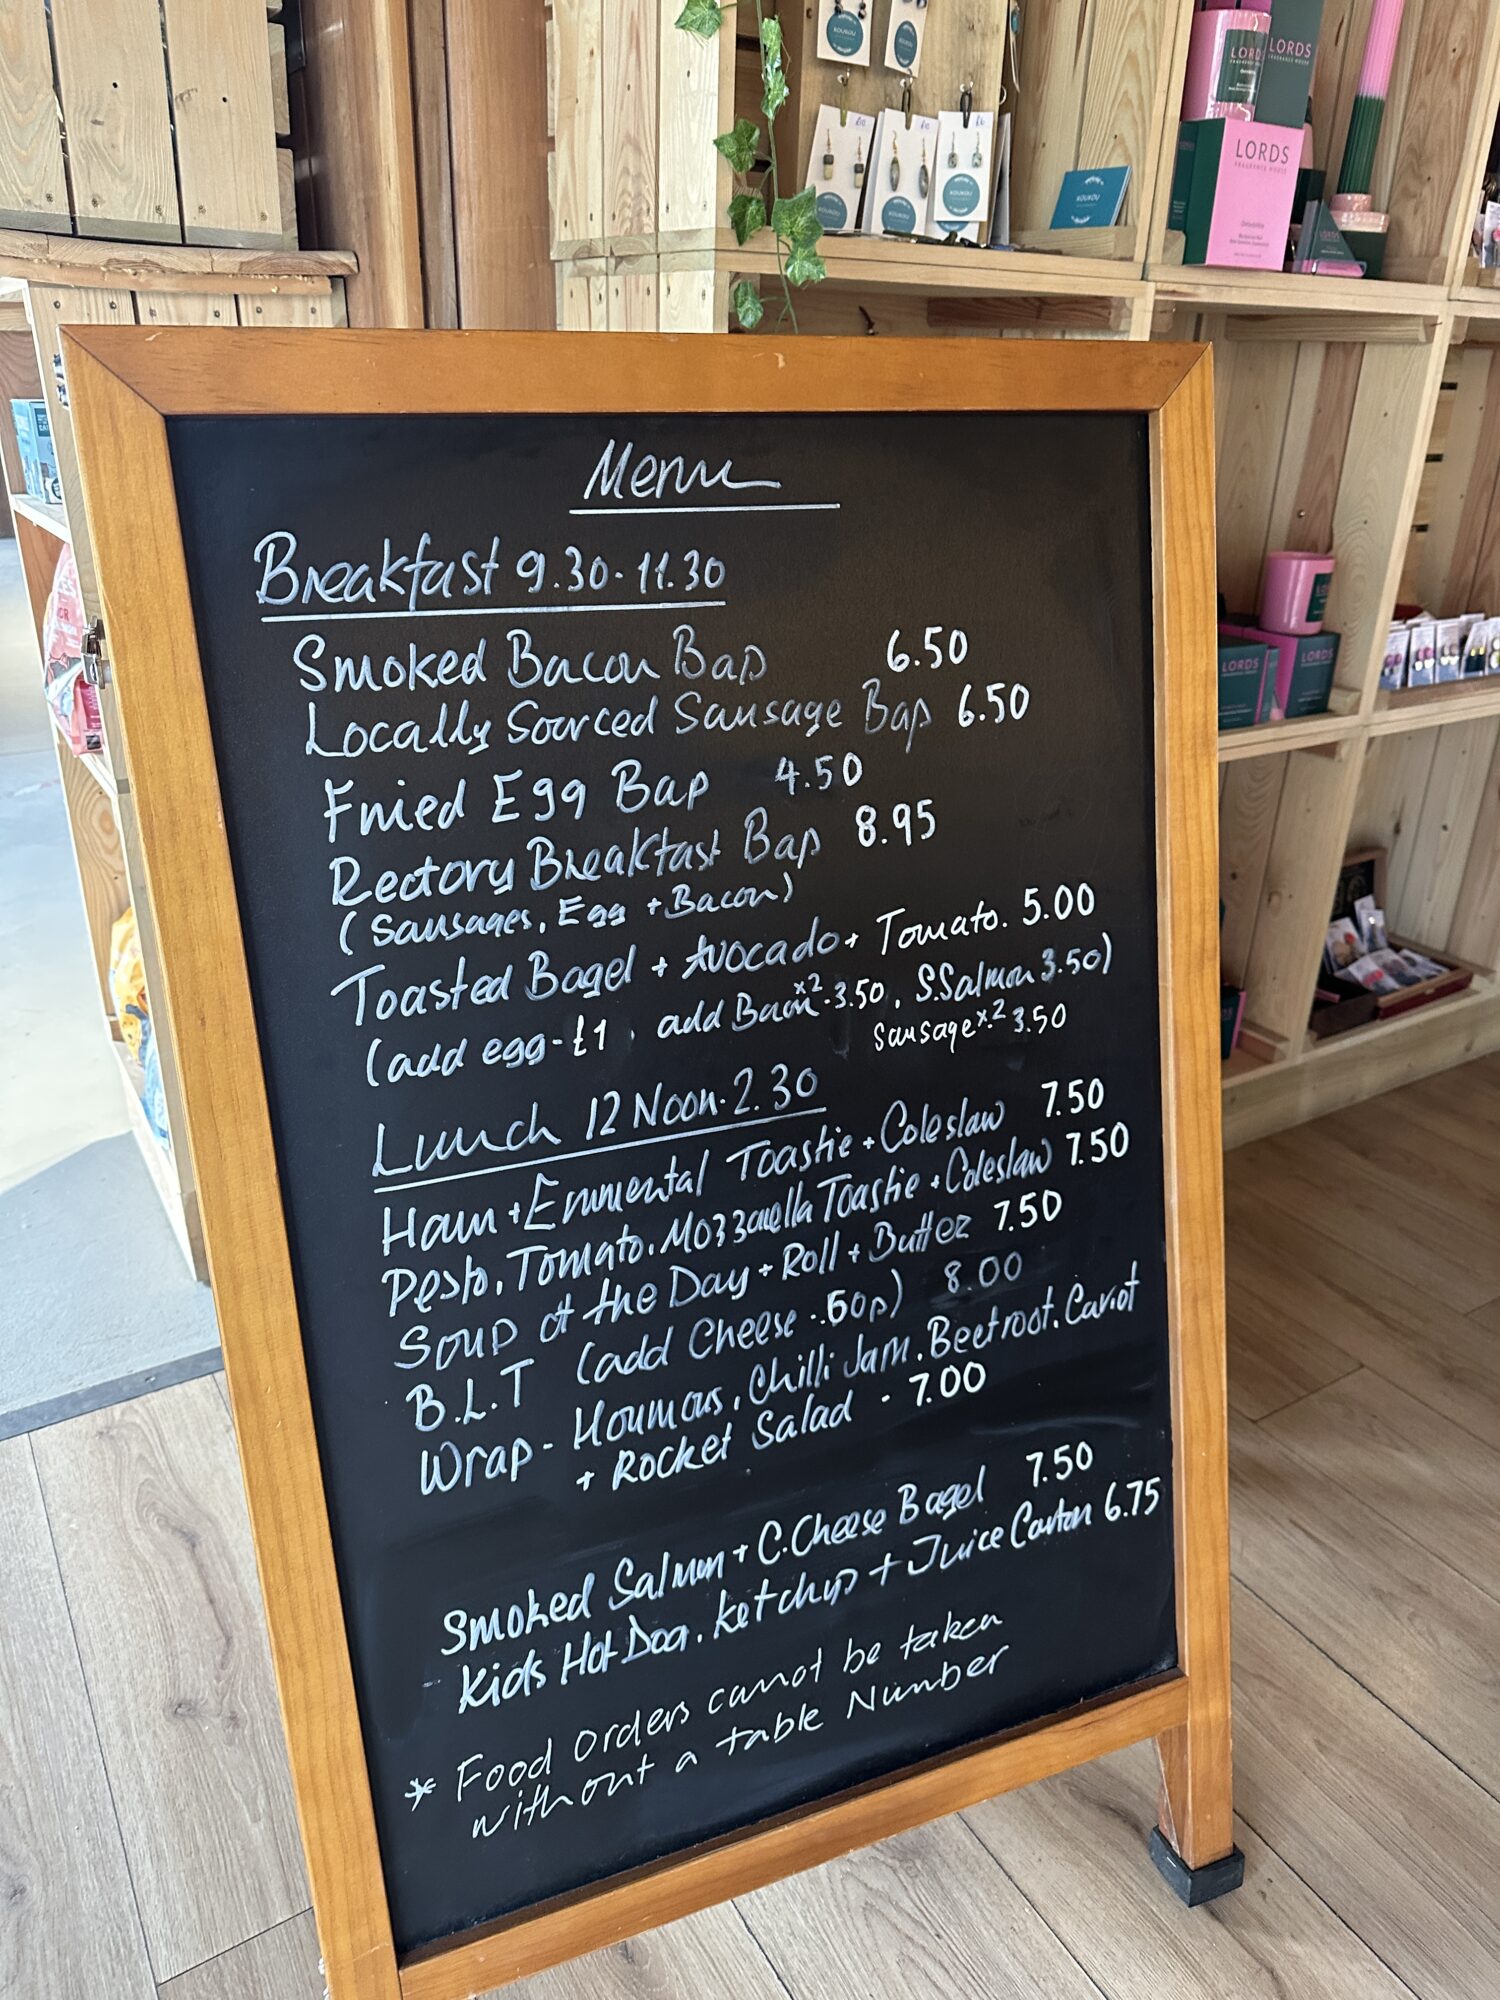 Menu
Breakfast 9.30-11.30
Smoked Bacon Bap 6.50
Locally Sourced Sausage Bap 6.50
Fried Egg Bap 4.50
Rectory Breakfast Bap 8.95
(Sausages, Egg + Bacon)
Toasted Bagel + Avocado + Tomato. 5.00
(add egg-£1, add Bacon x2-3.50, S.Salmon 3.50)
Sausage x2 3.50
Lunch 12 Noon-2.30
Ham + Emmental Toastie + Coleslaw 7.50
Pesto, Tomato, Mozzarella Toastie + Coleslaw 7.50
Soup of the Day + Roll + Butter 7.50
B.L.T (add Cheese .50p) 8.00
Wrap - Houmous, Chilli Jam, Beetroot, Carrot
+ Rocket Salad - 7.00
Smoked Salmon + C.Cheese Bagel 7.50
Kids Hot Dog, Ketchup + Juice Carton 6.75
* Food orders cannot be taken
without a table Number
KOUKOU
KOUKOU
£10
£10
£6
KOUKOU
KOUKOU
KOUKOU
KOUKOU
LORDS
FRAGRANCE HOUSE
LORDS
FRAGRANCE HOUSE
LORDS
FRAGRANCE HOUSE
LORDS
LORDS
LORDS